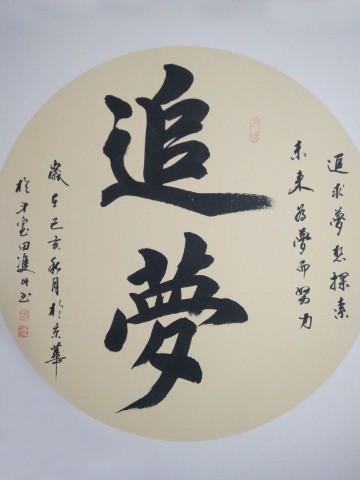 追夢
追求夢想探索
未来為夢而努力
歲在己亥秋月於京華
於斗室田進